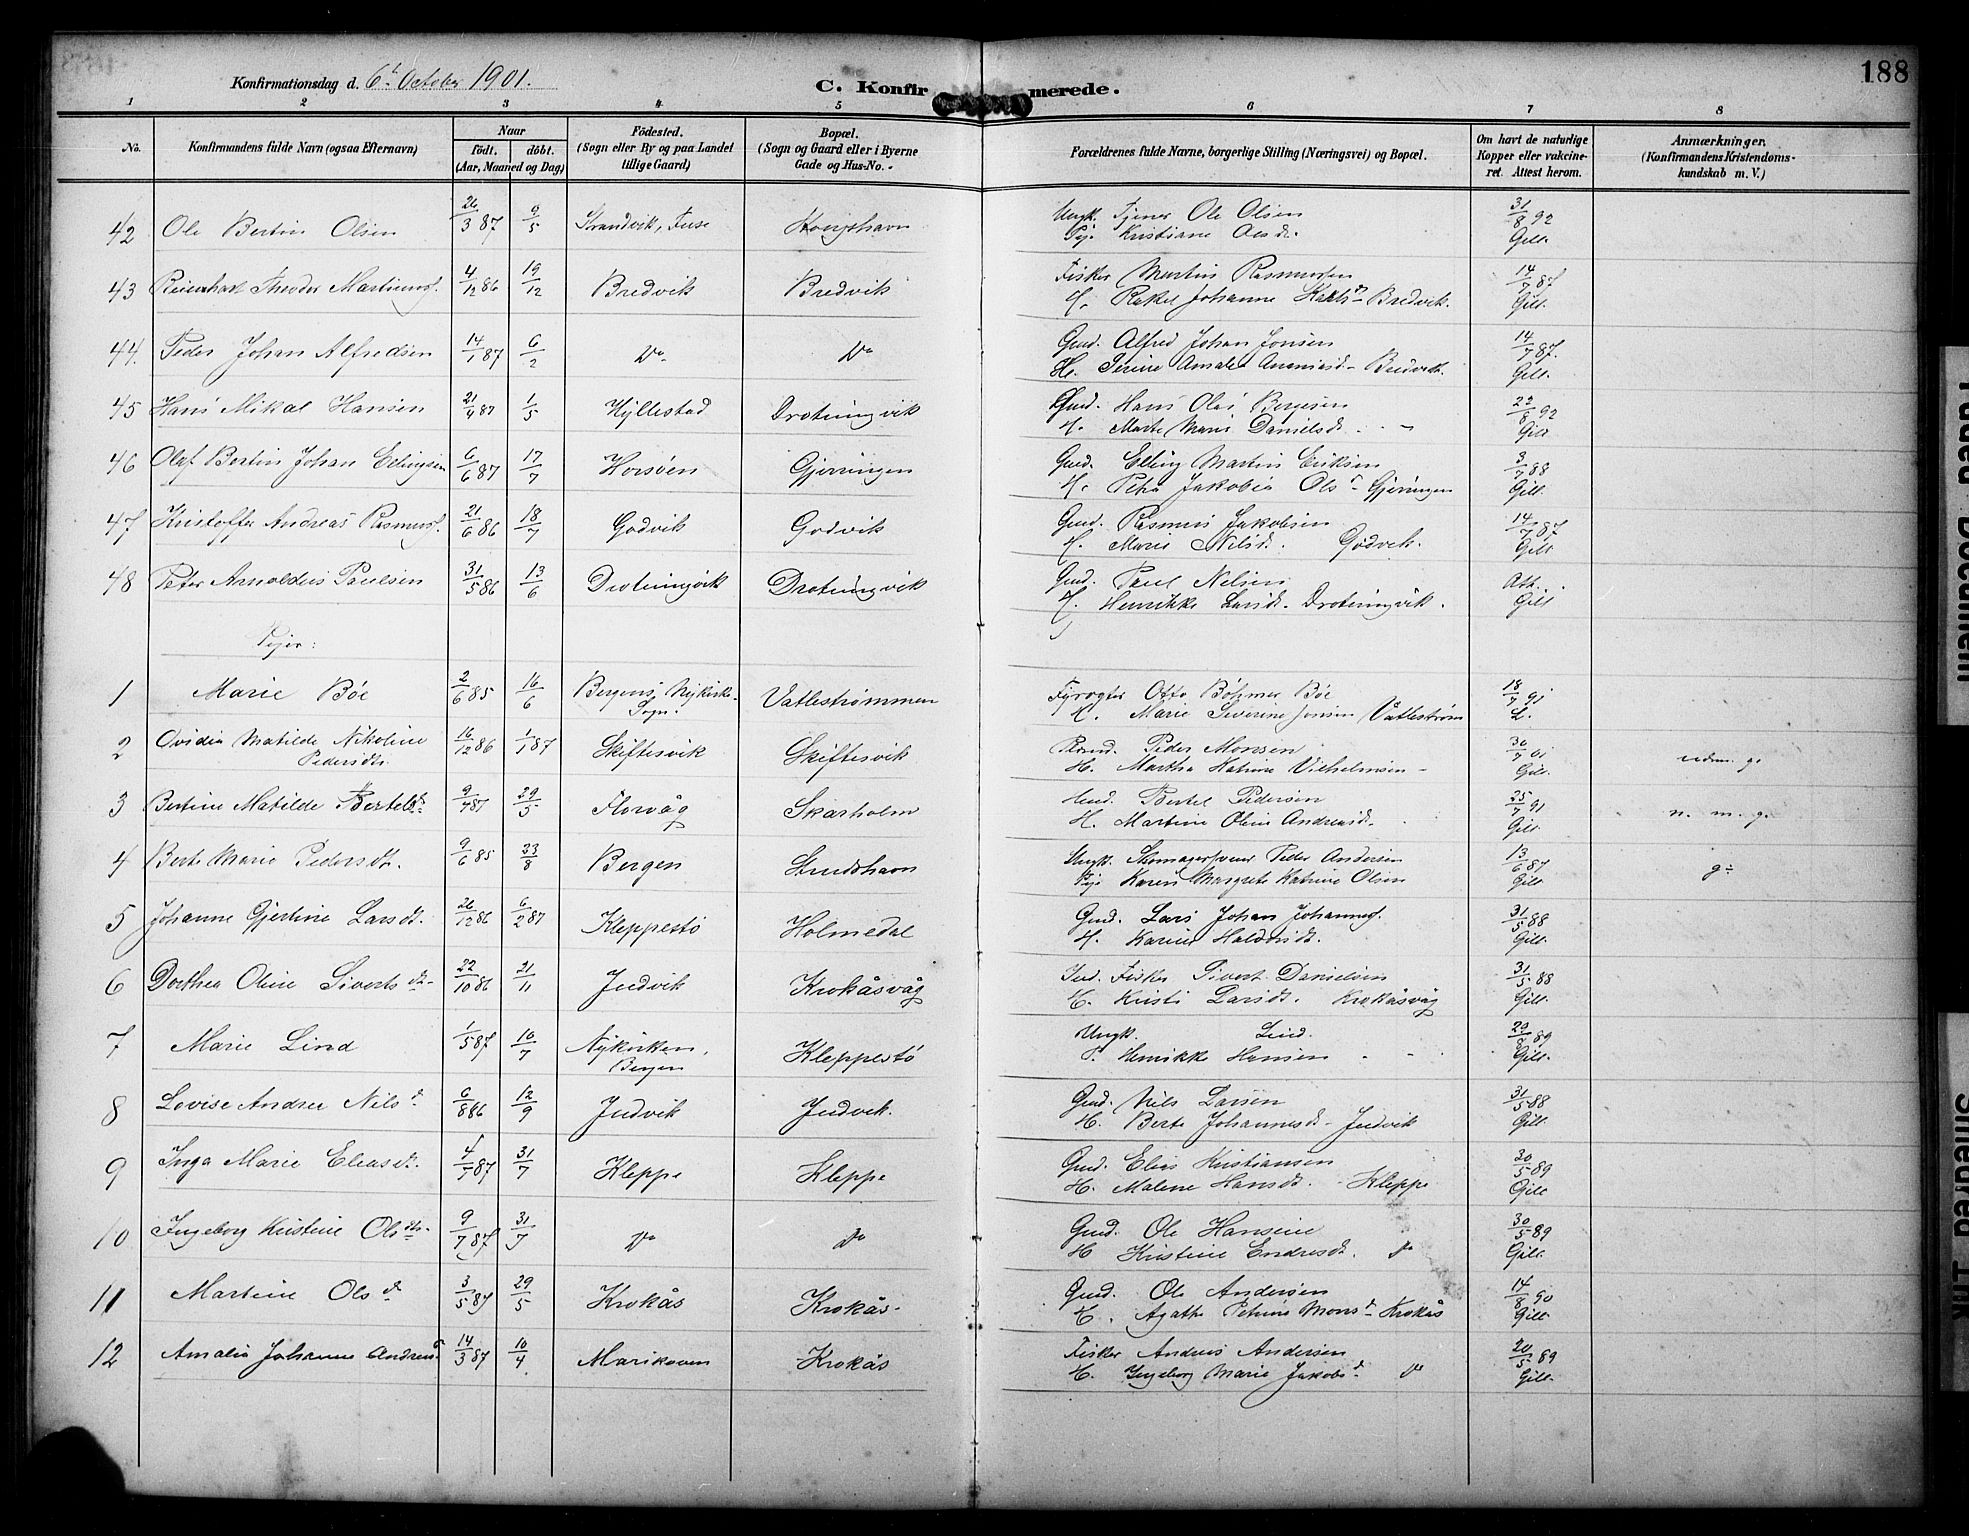 188
Konfirmationsdag d. 6te October 1901.
C. Konfirmerede.
1 2 3 4 5 6 7 8
No. Konfirmandens fulde Navn (ogsaa Efternavn) Naar født. døbt. (Aar, Maaned og Dag) Födested. (Sogn eller By og paa Landet tillige Gaard) Bopæl. (Sogn og Gaard eller i Byerne Gade og Hus-No. Forældrenes fulde Navne, borgerlige Stilling (Næringsvei) og Bopæl. Om havt de naturlige Kopper eller vakcineret. Attest herom. Anmærkninger. (Konfirmandens Kristendomskundskab m. V.)
42 Ole Bertin Olsen 26/3 87 9/5 Strandvik, Fuse Ungk. Tjener Ole Olsen 31/8 92
Pige Kristiane Olsdt. Gill.
43 Theodor 4/12 86 19/12 Bredvik Bredvik Fisker Martin Rasmussen 14/7 87
H. Rakel Johanne Bredvik. Gill.
44. Peder Johan Alfredsen 14/1 87 6/2 Do. Do Gmd. Alfred Johan Jonsen 14/7 87.
H. Serine Amalie Ananiasdt. Bredvik. Gill.
45 Hans Mikal Hansen 21/4 87 1/5 Hyllestad Drotningvik Gmd. Hans Olai Bergesen 22/8 92
H. Marte Marie Danielsdt. Gill
46 Olaf Bertin Johan Ellingsen 6/6 87 17/7 Horsöen Gjerringen Gmd. Elling Martin Eriksen 3/7 88
H. Petra Jakobia Olsdt Gjerringen Gill.
47 Kristoffer Andreas Rasmuss. 21/6 86 18/7 Godvik Godvik Gmd. Rasmus Jakobsen 14/7 87
H. Marie Nilsdt. Godvik. Gill.
48 Peter Arnoldus Paulsen 31/5 86 13/6 Drotningvik Drotningvik Gmd. Paul Nilsen Att.
H. Henrikke Larsdt. Drotningvik. Gill
Piger:
1 Marie Böe 2/6 85 16/6 Bergens Nykirke- Vatlestrømmen Fyrvogter Otto Böhmer Böe 18/7 91
Sogn. H. Marie Severine Jonsen Vatlestrøm L.
2 Ovidia Matilde Nikoline 16/12 86 1/1 87 Skiftesvik Skiftesvik Peder Monsen 30/7 01 udm. g.
Pedersdtr. H. Martha Katrine Vilhelmsen Gill.
3 Bertine Matilde Bertelsdt. 9/4 87 29/5 Florvåg Skarholm Bertel Pedersen 25/7 91 n. m. g.
H. Martine Oline Andreasdt. Gill.
4 Berte Marie Pedersdt. 9/6 85 23/8 Bergen Ungk. Skomagersvend Peder Andersen 13/6 87 g.
Pige Karen Margrete Katrine Olsen Gill
5 Johanne Gjertine Larsdt. 26/12 86 6/2 87 Kleppestö Holmedal Gmd. Lars Johan Johannes. 31/5 88
H. Karine Gill.
6 Dorthea Oline Sivertsdt. 22/10 86 21/11 Judvik Krokåsvåg Fisker Sivert Danielsen 31/5 88
H. Kristi Larsdt. Krokåsvåg Gill.
7 Marie Lind 1/5 87 10/7 Nykirken, Kleppestö Ungk. Lind. 29/8 89
Bergen P. Henrikke Hansen Gill.
8 Lovise Andrea Nilsdt 6/8 86 12/9 Judvik Judvik. Gmd. Nils Larsen 31/5 88
H. Berte Johannesdt. Judvik Gill.
9 Inga Marie Eliasdt. 4/5 87 31/7 Kleppe Kleppe Gmd. Elias Kristiansen 30/5 89
H. Malene Hansdt. Kleppe Gill
10 Ingeborg Kristine Olsdt. 9/7 87 31/7 Do Do Gmd. Ole Hansen 30/5 89
H Kristine Endresdt. Do Gill.
11 Martine Olsdt 3/5 87 29/5 Krokås Krokås. Gmd. Ole Andersen 14/8 90
H. Agathe Petrine Monsdt Krokås Gill.
12 Amalia Johanne Andreasdt. 14/3 87 10/4 Marikoven Krokås Fisker Andreas Andersen 20/5 89
H. Ingeborg Marie Jakobsdt Do Gill.